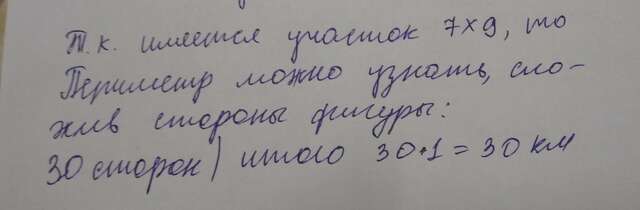 Т.к. имеется участок 7×9, то
Периметр можно узнать, сло-
жив стороны фигуры:
30 сторон) итого 30•1 = 30 км